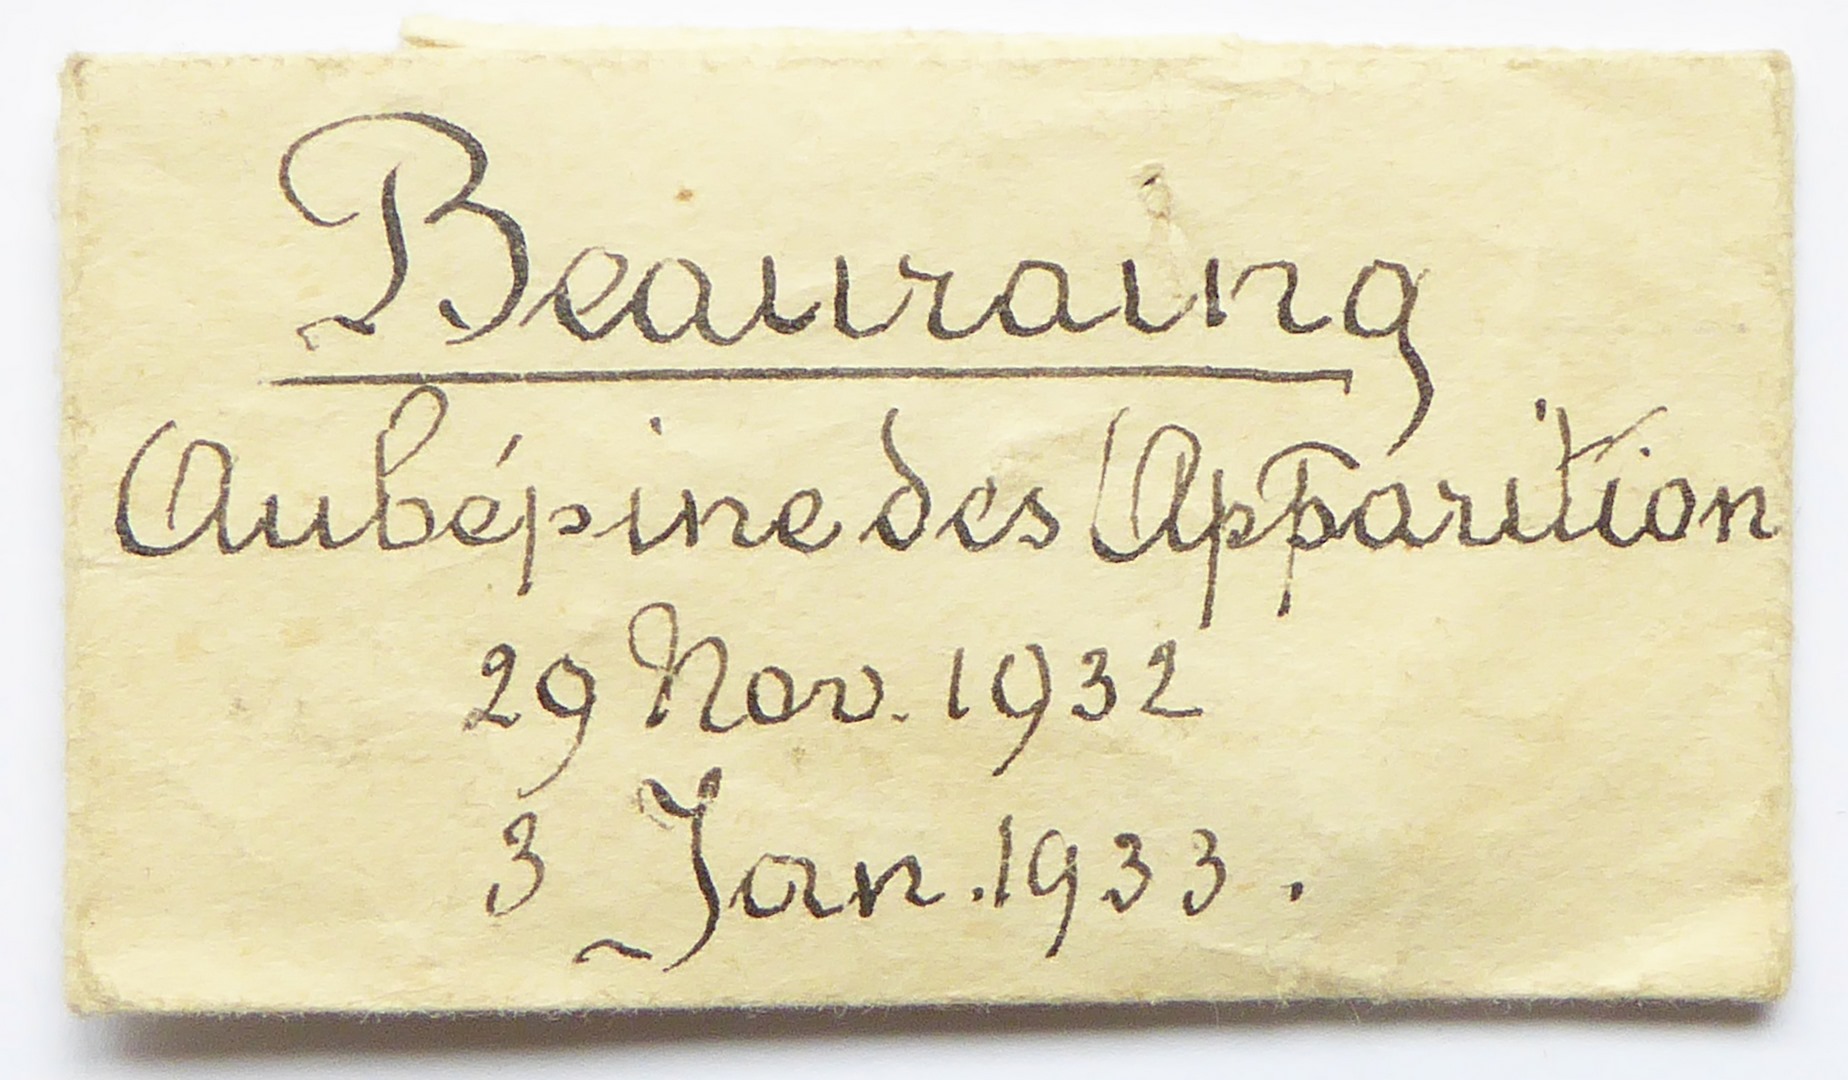 Beauraing
Aubépine des Apparition
29 Nov. 1932
3 Jan. 1933.